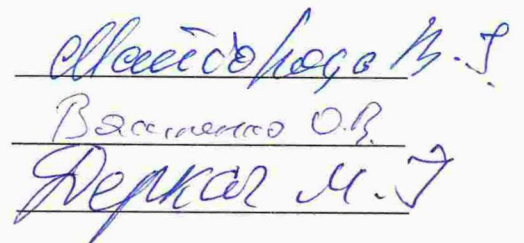 Майборода В. І.
Василенко О.В.
Деркач М. І